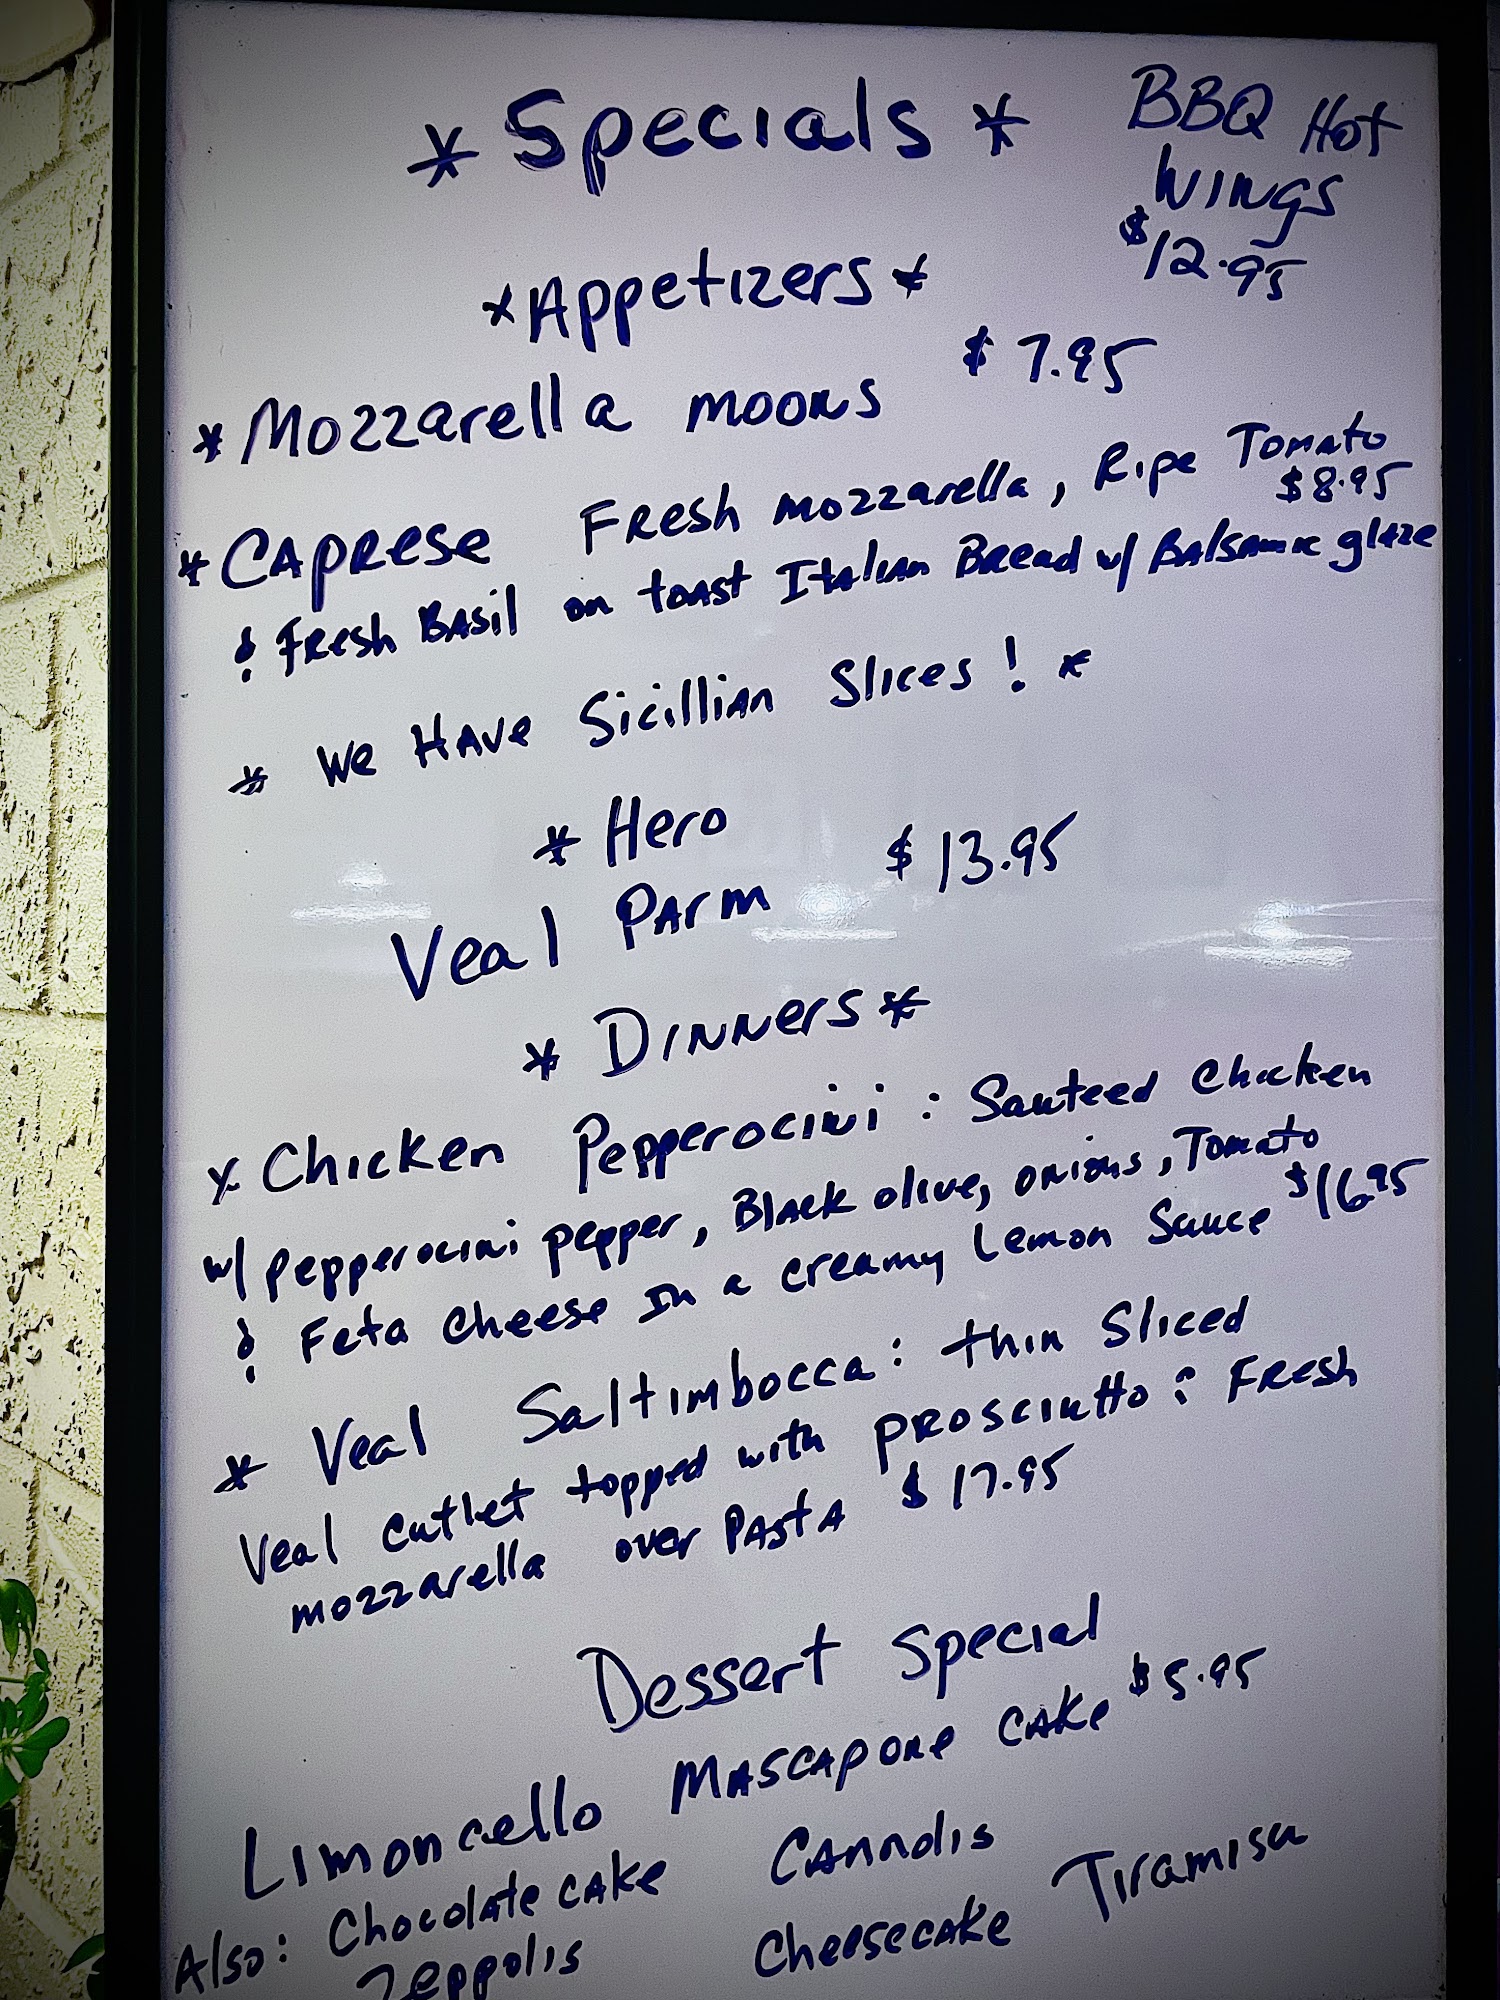 * Specials *
BBQ Hot
Wings
$12.95
* Appetizers *
* Mozzarella moons $7.95
* Caprese Fresh mozzarella, Ripe Tomato
$8.95
& Fresh Basil on toast Italian Bread w/ Balsamic glaze
* We Have Sicillian Slices! *
* Hero
Veal Parm $13.95
* Dinners *
* Chicken Pepperocini: Sauteed Chicken
w/ pepperocini pepper, Black olive, onions, Tomato
& Feta Cheese In a creamy Lemon Sauce $16.95
* Veal Saltimbocca: thin Sliced
Veal cutlet topped with prosciutto & Fresh
mozzarella over Pasta $17.95
Dessert Special
Limoncello Mascapone Cake $5.95
Also: Chocolate cake Cannolis
Zeppolis Cheesecake Tiramisu